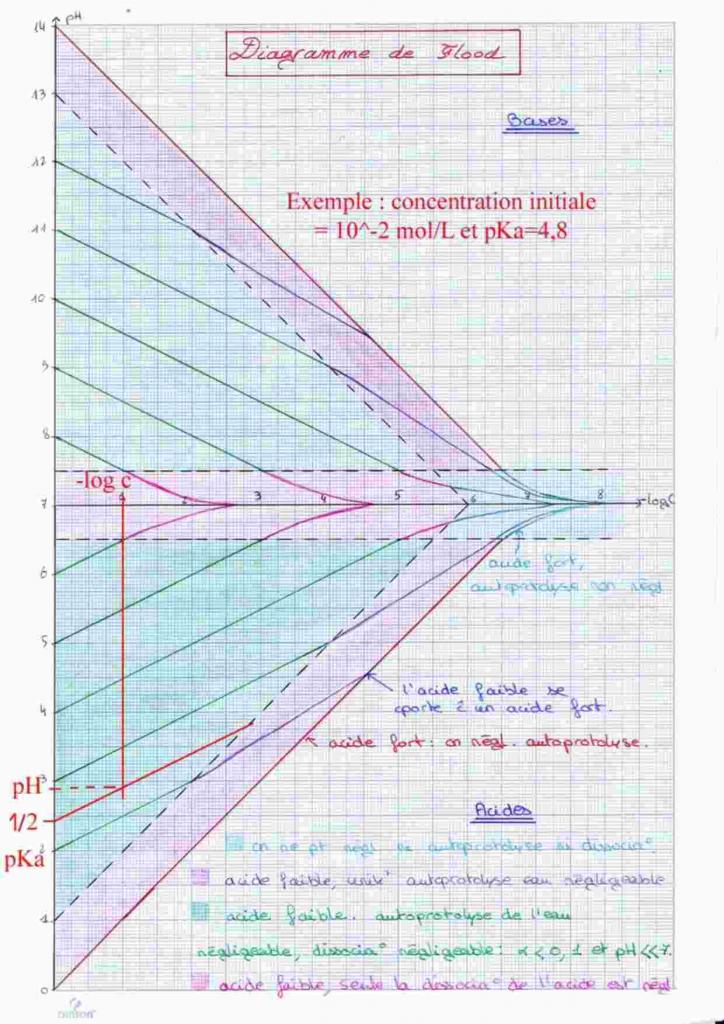 pH
Diagramme de Flood
Bases
Exemple : concentration initiale
= 10^-2 mol/L et pKa=4,8
14
13
12
11
10
9
8
-log c
7 1 2 3 4 5 6 7 8 -logC
6
acide fort,
autoprotolyse non négl
5
4
l'acide faible se
cporte ê un acide fort.
acide fort : on négl. autoprotolyse.
3
pH
1/2
2
pKa
Acides
on ne pt négl ni autoprotolyse ni dissocia°.
acide faible, autoprotolyse eau négligeable
1
acide faible. autoprotolyse de l'eau
négligeable, dissocia° négligeable : α < 0,1 et pH <<7.
0
acide faible, seule la dissocia° de l'acide est négl
canson